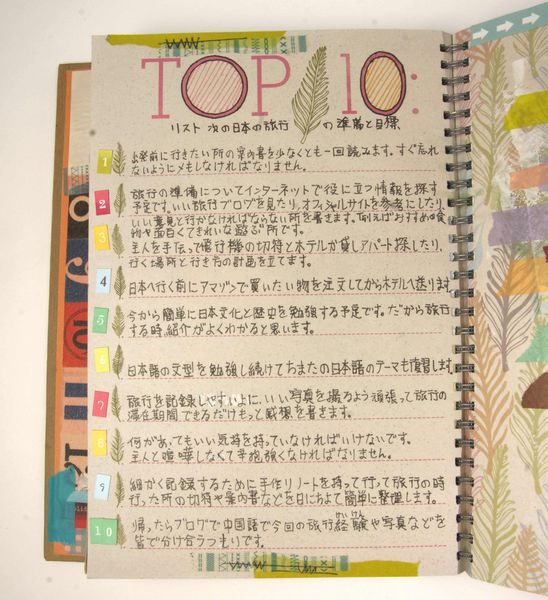 TOP 10:
リスト 次の日本の旅行 の準備と目標
1 出発前に行きたい所の案内書を少なくとも一回読みます。すぐ忘れ
ないようにメモしなければなりません。
2 旅行の準備についてインターネットで役に立つ情報を探す
予定です。いい旅行ブログを見たり、オフィシャルサイトを参考にしたり、
いい意見と行かなければならない所を書きます。例えばおすすめの食
物や面白くてきれいな遊ぶ所です。
3 主人を手伝って飛行機の切符とホテルか貸しアパート探したり、
行く場所と行き方の計画を立てます。
4 日本へ行く前にアマゾンで買いたい物を注文してからホテルへ送ります
5 今から簡単に日本文化と歴史を勉強する予定です。だから旅行
する時、紹介がよくわかると思います。
6 日本語の文型を勉強し続けておまたの日本語のテーマも復習します
7 旅行を記録しやすいように、いい写真を撮るよう頑張って旅行の
滞在期間できるだけもっと感想を書きます。
8 何があってもいい気持を持っていなければいけないです。
主人と喧嘩しなくて辛抱強くなければなりません。
9 細かく記録するために手作りノートを持って行って旅行の時
行った所の切符や案内書などを日によって簡単に整理します。
10 帰ったらブログで中国語で今回の旅行経験や写真などを
けいけん
皆で分け合うつもりです。